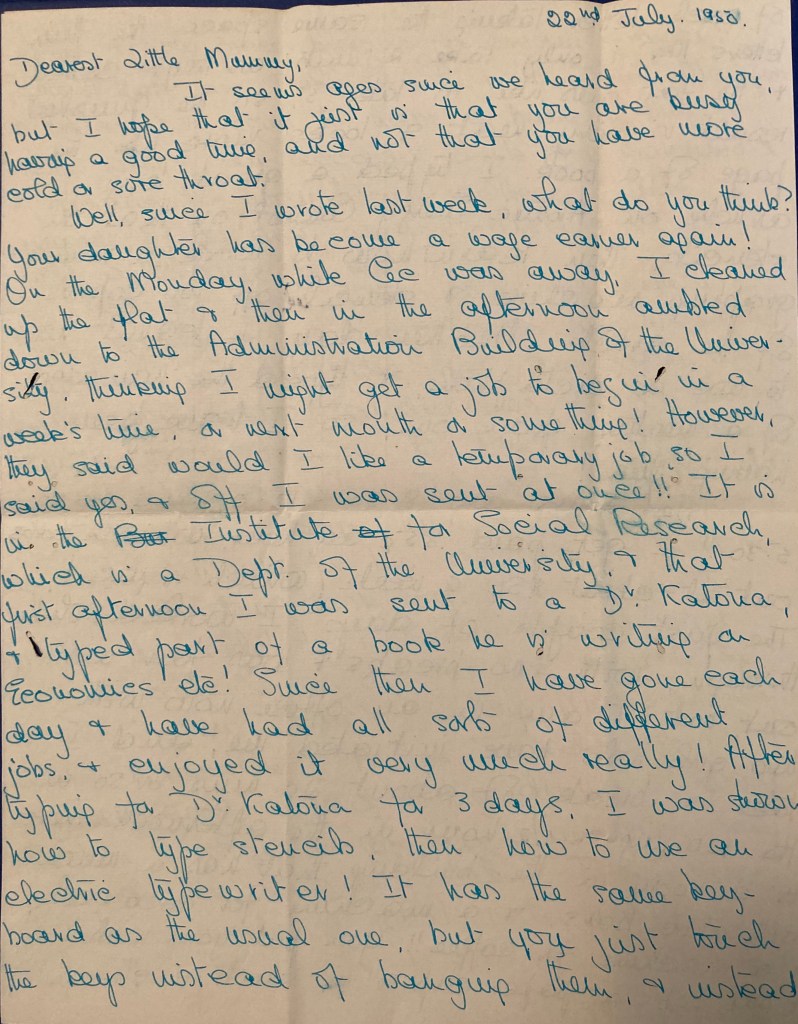 22nd July. 1950.
Dearest Little Mummy,
It seems ages since we heard from you,
but I hope that it just is that you are busy
having a good time, and not that you have more
cold or sore throat.
Well, since I wrote last week, what do you think?
Your daughter has become a wage earner again!
On the Monday, while Cec was away, I cleaned
up the flat & then in the afternoon ambled
down to the Administration Building of the Univer-
sity, thinking I might get a job to begin in a
week's time, or next month or something! However,
they said would I like a temporary job so I
said yes, & off I was sent at once!! It is
in the Institute of for Social Research,
which is a Dept. of the University, & that
first afternoon I was sent to a Dr. Katona,
& typed part of a book he is writing on
Economics etc! Since then I have gone each
day & have had all sorts of different
jobs, & enjoyed it very much really! After
typing for Dr. Katona for 3 days, I was shown
how to type stencils, then how to use an
electric typewriter! It has the same key-
board as the usual one, but you just touch
the keys instead of banging them, & instead